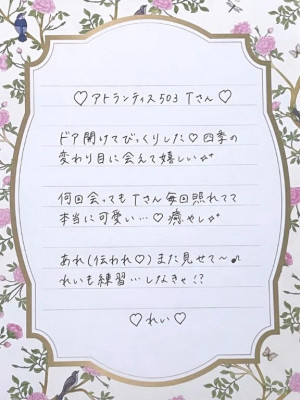 ♡アトランティス503 Tさん♡
ドア開けてびっくりした♡四季の
変わり目に会えて嬉しい✨
何回会ってもTさん毎回照れてて
本当に可愛い…♡癒やし✨
あれ(伝われ♡)また見せて〜♪
れいも練習…しなきゃ!?
♡れい♡